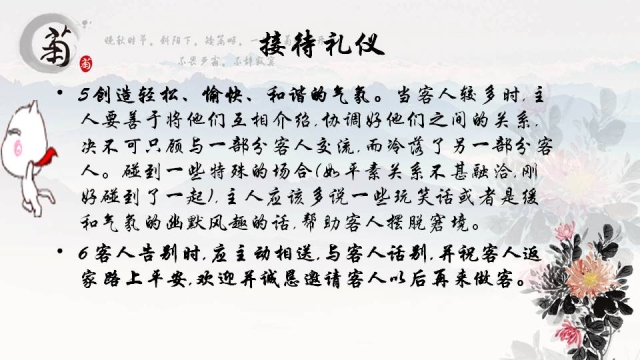 菊
菊
晚秋时节，斜阳下，
接待礼仪
• 5创造轻松、愉快、和谐的气氛。当客人较多时,主
人要善于将他们互相介绍,协调好他们之间的关系,
决不可只顾与一部分客人交流,而冷落了另一部分客
人。碰到一些特殊的场合(如平素关系不甚融洽,刚
好碰到了一起),主人应该多说一些玩笑话或者是缓
和气氛的幽默风趣的话,帮助客人摆脱窘境。
• 6客人告别时,应主动相送,与客人话别,并祝客人返
家路上平安,欢迎并诚恳邀请客人以后再来做客。